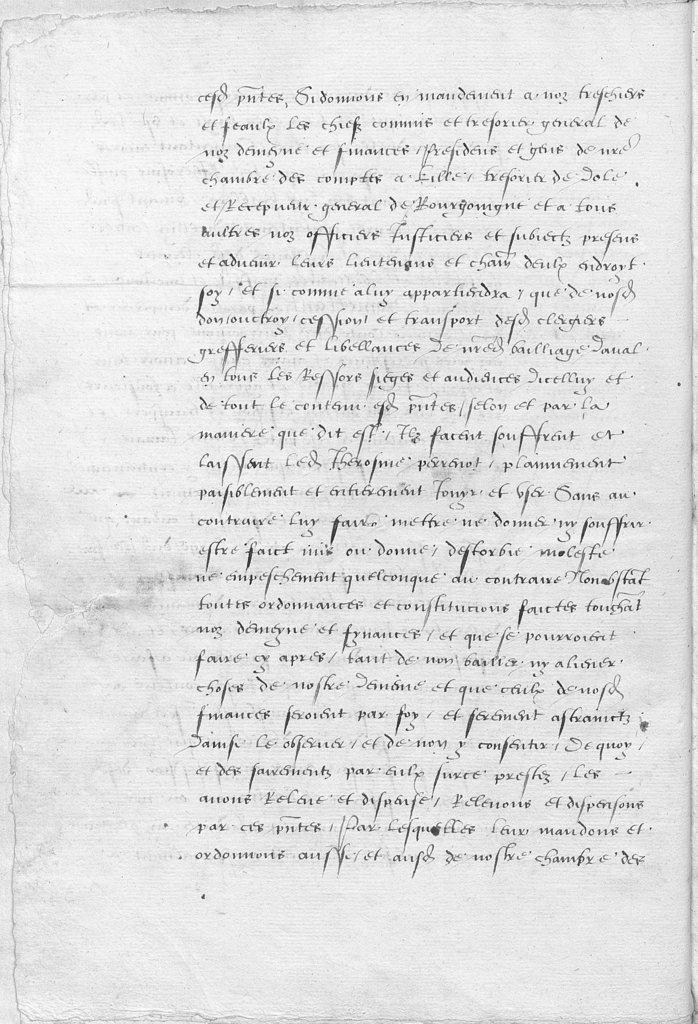 cesd pntes, Si donnons en mandement a noz treschiers
et feaulx les chiefz commis et tresorier general de
noz demeyne et finances / Presidens et gens de nre
chambre des comptes a Lille / tresorier de Dole
et Recepveur general de Bourgoingne et a tous
aultres noz officiers Justiciers et subiectz presens
et advenir leurs lieutenans et chun deulx endroyt
soy / et si comme a luy appartiendra / que de nosd
don / ouctroy / cession / et transport desd clergies
grefferiers et libellances de nred bailliage daval
en tous les Ressors sieges et audiences dicelluy et
de tout le contenu esd pntes / selon et par la
maniere que dit est / Ilz facent souffrent et
laissent led Iherosme perrenot / plainnement
paisiblement et entierement Jouyr et vser Sans au
contraire luy faire mettre ne donner ny souffrir
estre faict mis ou donne / destorbie moleste
ne empeschement quelconque au contraire Nonobstat
toutes ordonnances et constitucions faictes touchat
noz demeyne et fynances / et que se pourroient
faire cy apres / tant de non baillier ny aliener
choses de nostre demene et que ceulx de nosd
finances seroient par foy / et serement astrainctz
dainsi le observer / et de non y consentir / De quoy /
et des sairementz par eulx surce prestez / les
avons Releve et dispense / Relevons et dispensons
par ces pntes / Par lesquelles leur mandons et
ordonnons aussi / et ausd de nostre chambre des